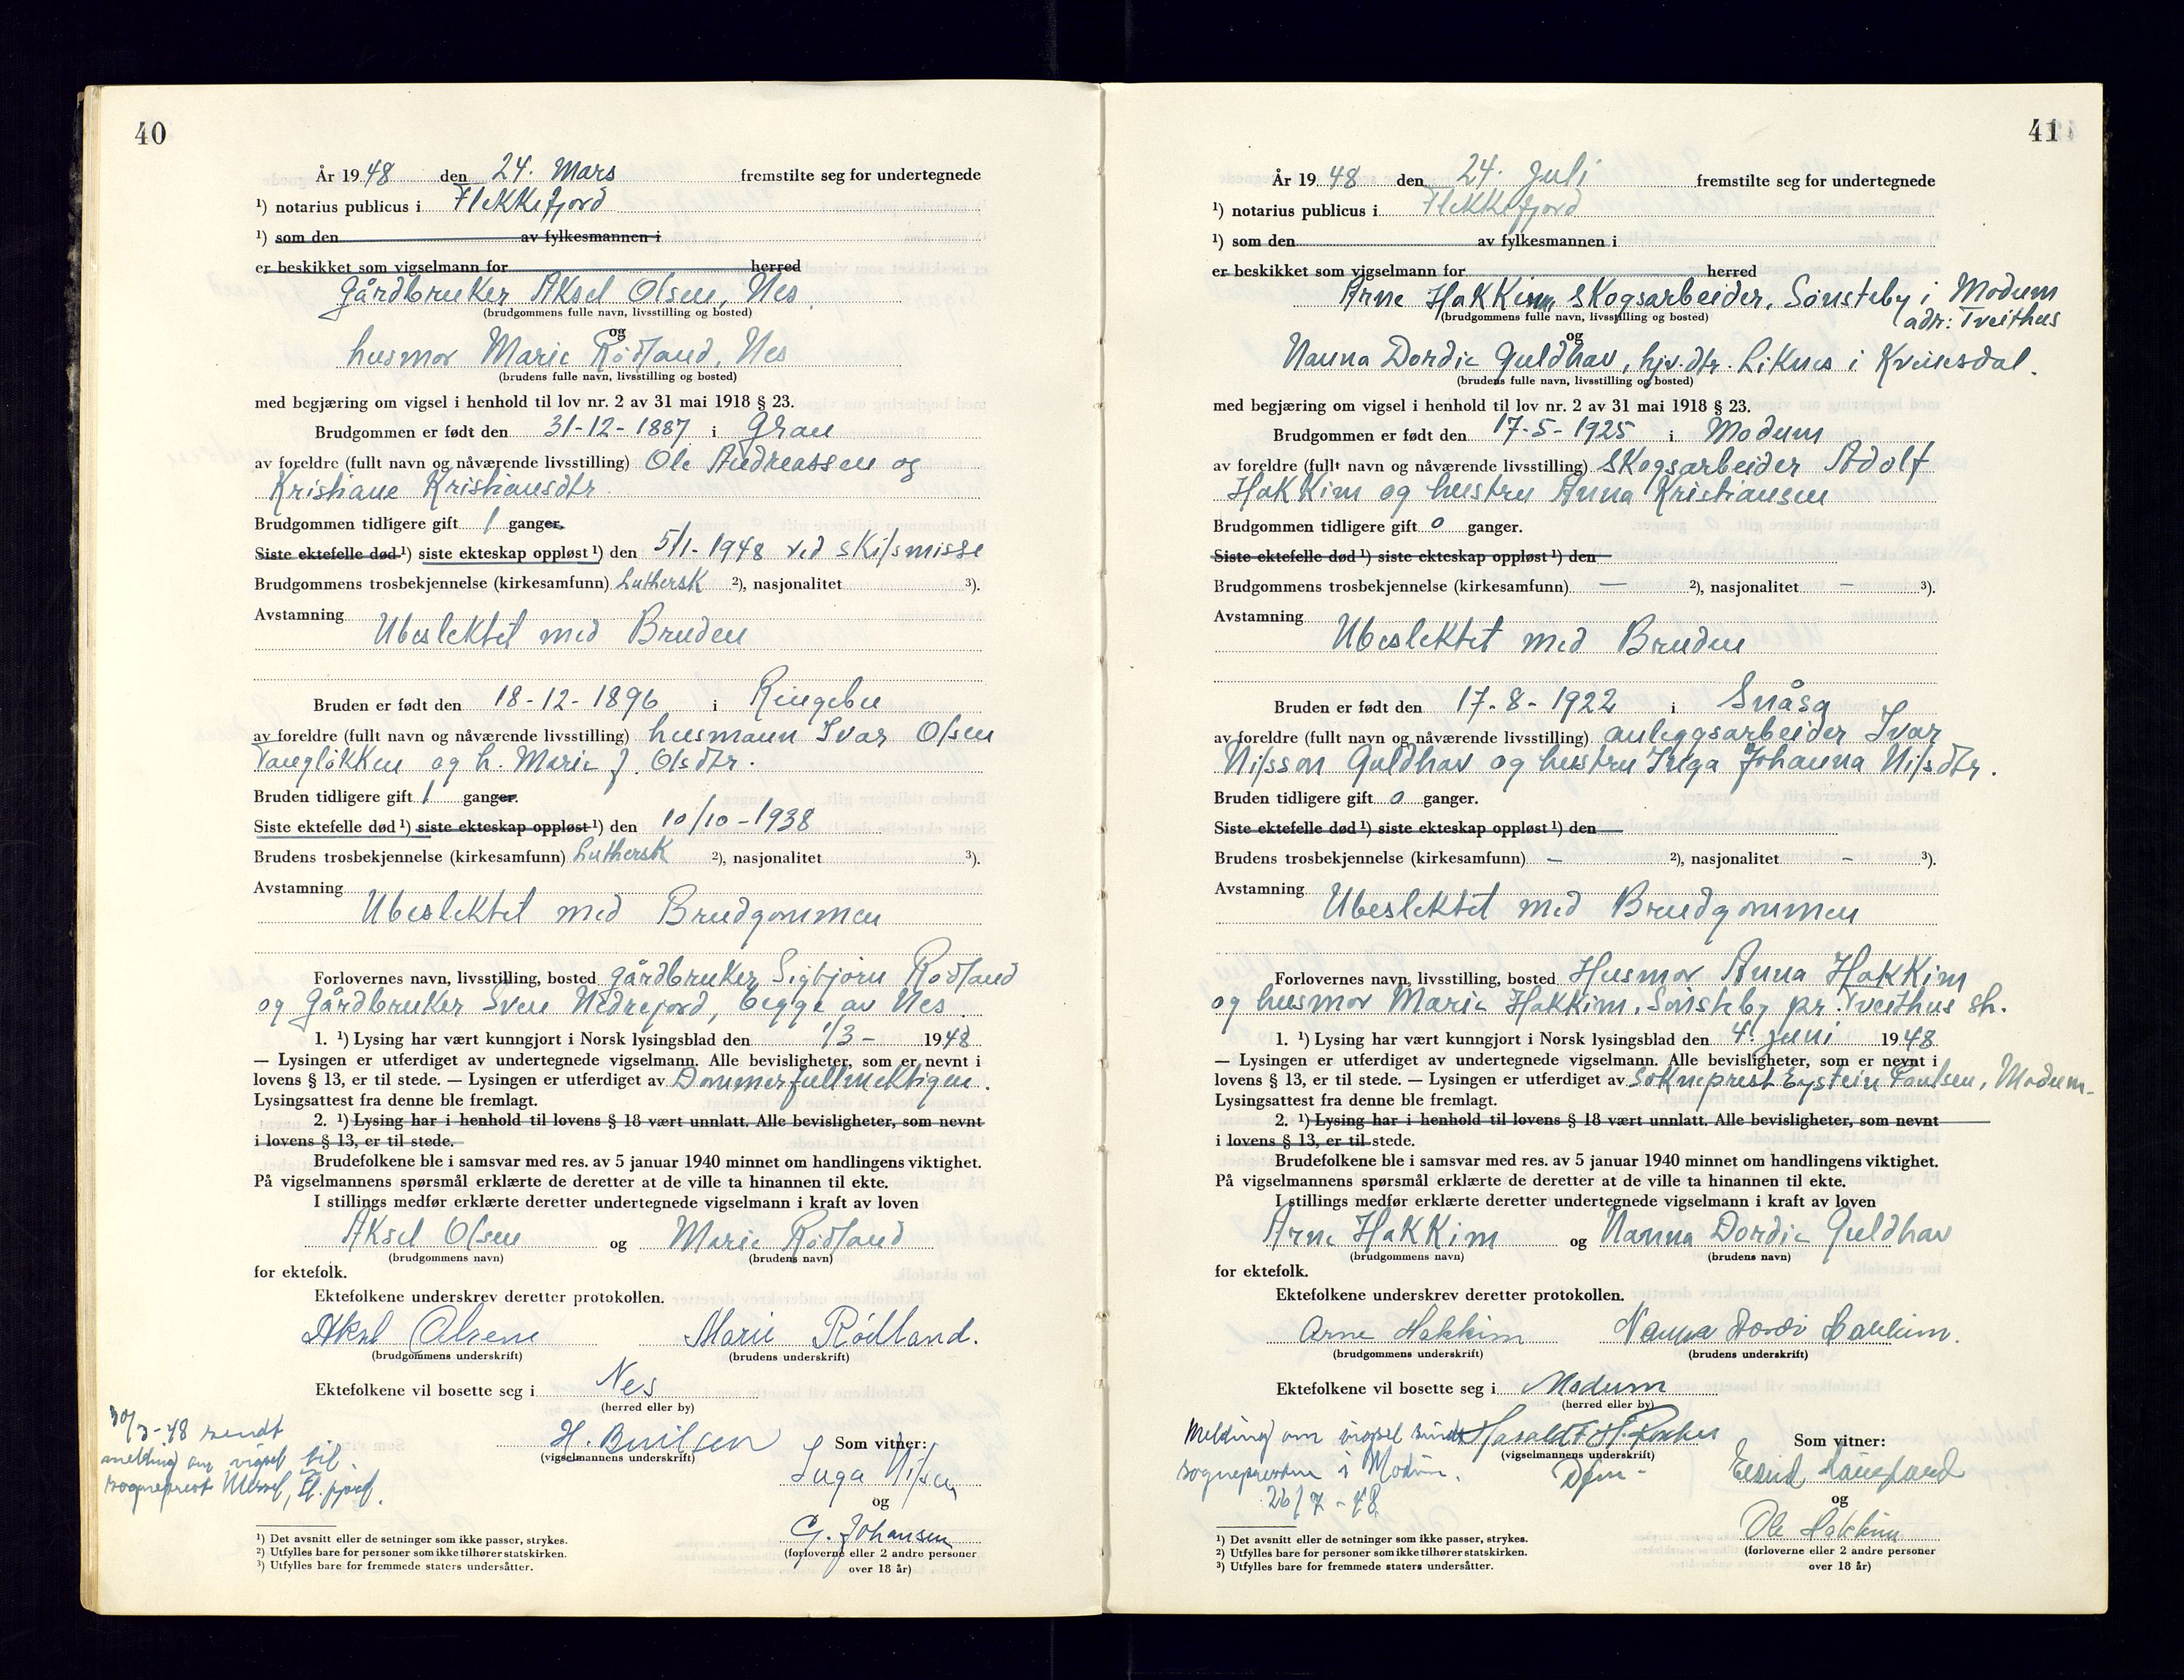 40
År 1948 den 24. Mars fremstilte seg for undertegnede
¹) notarius publicus i Flekkefjord
¹) som den av fylkesmannen i
er beskikket som vigselmann for herred
Gårdbruker Aksel Olsen, Nes.
(brudgommens fulle navn, livsstilling og bosted)
og
husmor Marie Rødland, Nes
(brudens fulle navn, livsstilling og bosted)
med begjæring om vigsel i henhold til lov nr. 2 av 31 mai 1918 § 23.
Brudgommen er født den 31-12-1887 i Gran
av foreldre (fullt navn og nåværende livsstilling) Ole Andreassen og
Kristiane Kristiansdtr.
Brudgommen tidligere gift 1 ganger.
Siste ektefelle død ¹) siste ekteskap oppløst ¹) den 5/1-1948 ved skilsmisse
Brudgommens trosbekjennelse (kirkesamfunn) Luthersk ²), nasjonalitet ³).
Avstamning
Ubeslektet med Bruden
Bruden er født den 18-12-1896 i Ringebu
av foreldre (fullt navn og nåværende livsstilling) husmann Ivar Olsen
og h. Marie J. Olsdtr.
Bruden tidligere gift 1 ganger.
Siste ektefelle død ¹) siste ekteskap oppløst ¹) den 10/10-1938
Brudens trosbekjennelse (kirkesamfunn) Luthersk ²), nasjonalitet ³).
Avstamning
Ubeslektet med Brudgommen
Forlovernes navn, livsstilling, bosted gårdbruker Sigbjørn Rødland
og Gårdbruker Sven Nedrejord, begge av Nes.
1. ¹) Lysing har vært kunngjort i Norsk lysingsblad den 1/3- 1948
— Lysingen er utferdiget av undertegnede vigselmann. Alle bevisligheter, som er nevnt i
lovens § 13, er til stede. — Lysingen er utferdiget av Dommerfullmektigen.
Lysingsattest fra denne ble fremlagt.
2. ¹) Lysing har i henhold til lovens § 18 vært unnlatt. Alle bevisligheter, som nevnt
i lovens § 13, er til stede.
Brudefolkene ble i samsvar med res. av 5 januar 1940 minnet om handlingens viktighet.
På vigselmannens spørsmål erklærte de deretter at de ville ta hinannen til ekte.
I stillings medfør erklærte deretter undertegnede vigselmann i kraft av loven
Aksel Olsen og Marie Rødland
(brudgommens navn) (brudens navn)
for ektefolk.
Ektefolkene underskrev deretter protokollen.
Aksel Olsen Marie Rødland.
(brudgommens underskrift) (brudens underskrift)
Ektefolkene vil bosette seg i Nes
(herred eller by)
30/3-48 sendt
melding om vigsel til
sogneprest
H.
(vigselmannens underskrift)
Som vitner:
Inga Nilsen
og
G. Johansen
(forloverne eller 2 andre personer
over 18 år)
¹) Det avsnitt eller de setninger som ikke passer, strykes.
²) Utfylles bare for personer som ikke tilhører statskirken.
³) Utfylles bare for fremmede staters undersåtter.
41
År 1948 den 24. Juli fremstilte seg for undertegnede
¹) notarius publicus i Flekkefjord
¹) som den av fylkesmannen i
er beskikket som vigselmann for herred
Arne Hakkim, Skogsarbeider, Sønsteby i Modum
adr: Tveithus
(brudgommens fulle navn, livsstilling og bosted)
og
Nanna Dordie Guldhav, hjv.dtr. Liknes i Kvinesdal.
(brudens fulle navn, livsstilling og bosted)
med begjæring om vigsel i henhold til lov nr. 2 av 31 mai 1918 § 23.
Brudgommen er født den 17-5-1925 i Modum
av foreldre (fullt navn og nåværende livsstilling) Skogsarbeider Adolf
Hakkim og hustru Anna Kristiansen
Brudgommen tidligere gift 0 ganger.
Siste ektefelle død ¹) siste ekteskap oppløst ¹) den
Brudgommens trosbekjennelse (kirkesamfunn) — ²), nasjonalitet — ³).
Avstamning
Ubeslektet med Bruden
Bruden er født den 17-8-1922 i Snåsa
av foreldre (fullt navn og nåværende livsstilling) anleggsarbeider Ivar
Nilsson Guldhav og hustru Inga Johanna Nilsdtr.
Bruden tidligere gift 0 ganger.
Siste ektefelle død ¹) siste ekteskap oppløst ¹) den
Brudens trosbekjennelse (kirkesamfunn) — ²), nasjonalitet — ³).
Avstamning
Ubeslektet med Brudgommen
Forlovernes navn, livsstilling, bosted Husmor Anna Hakkim
og husmor Marie Hakkim, Sønsteby pr. Tveithus sh.
1. ¹) Lysing har vært kunngjort i Norsk lysingsblad den 4. juni 1948
— Lysingen er utferdiget av undertegnede vigselmann. Alle bevisligheter, som er nevnt i
lovens § 13, er til stede. — Lysingen er utferdiget av Sokneprest Eystein Paulsen, Modum
Lysingsattest fra denne ble fremlagt.
2. ¹) Lysing har i henhold til lovens § 18 vært unnlatt. Alle bevisligheter, som nevnt
i lovens § 13, er til stede.
Brudefolkene ble i samsvar med res. av 5 januar 1940 minnet om handlingens viktighet.
På vigselmannens spørsmål erklærte de deretter at de ville ta hinannen til ekte.
I stillings medfør erklærte deretter undertegnede vigselmann i kraft av loven
Arne Hakkim og Nanna Dordie Guldhav
(brudgommens navn) (brudens navn)
for ektefolk.
Ektefolkene underskrev deretter protokollen.
Arne Hakkim Nanna Dordi Hakkim.
(brudgommens underskrift) (brudens underskrift)
Ektefolkene vil bosette seg i Modum
(herred eller by)
Melding om vigsel sendt
sognepresten i Modum.
26/7-48
Harald F. H.
(vigselmannens underskrift)
Dfm-
Som vitner:
og
Ole Hakkim
(forloverne eller 2 andre personer
over 18 år)
¹) Det avsnitt eller de setninger som ikke passer, strykes.
²) Utfylles bare for personer som ikke tilhører statskirken.
³) Utfylles bare for fremmede staters undersåtter.